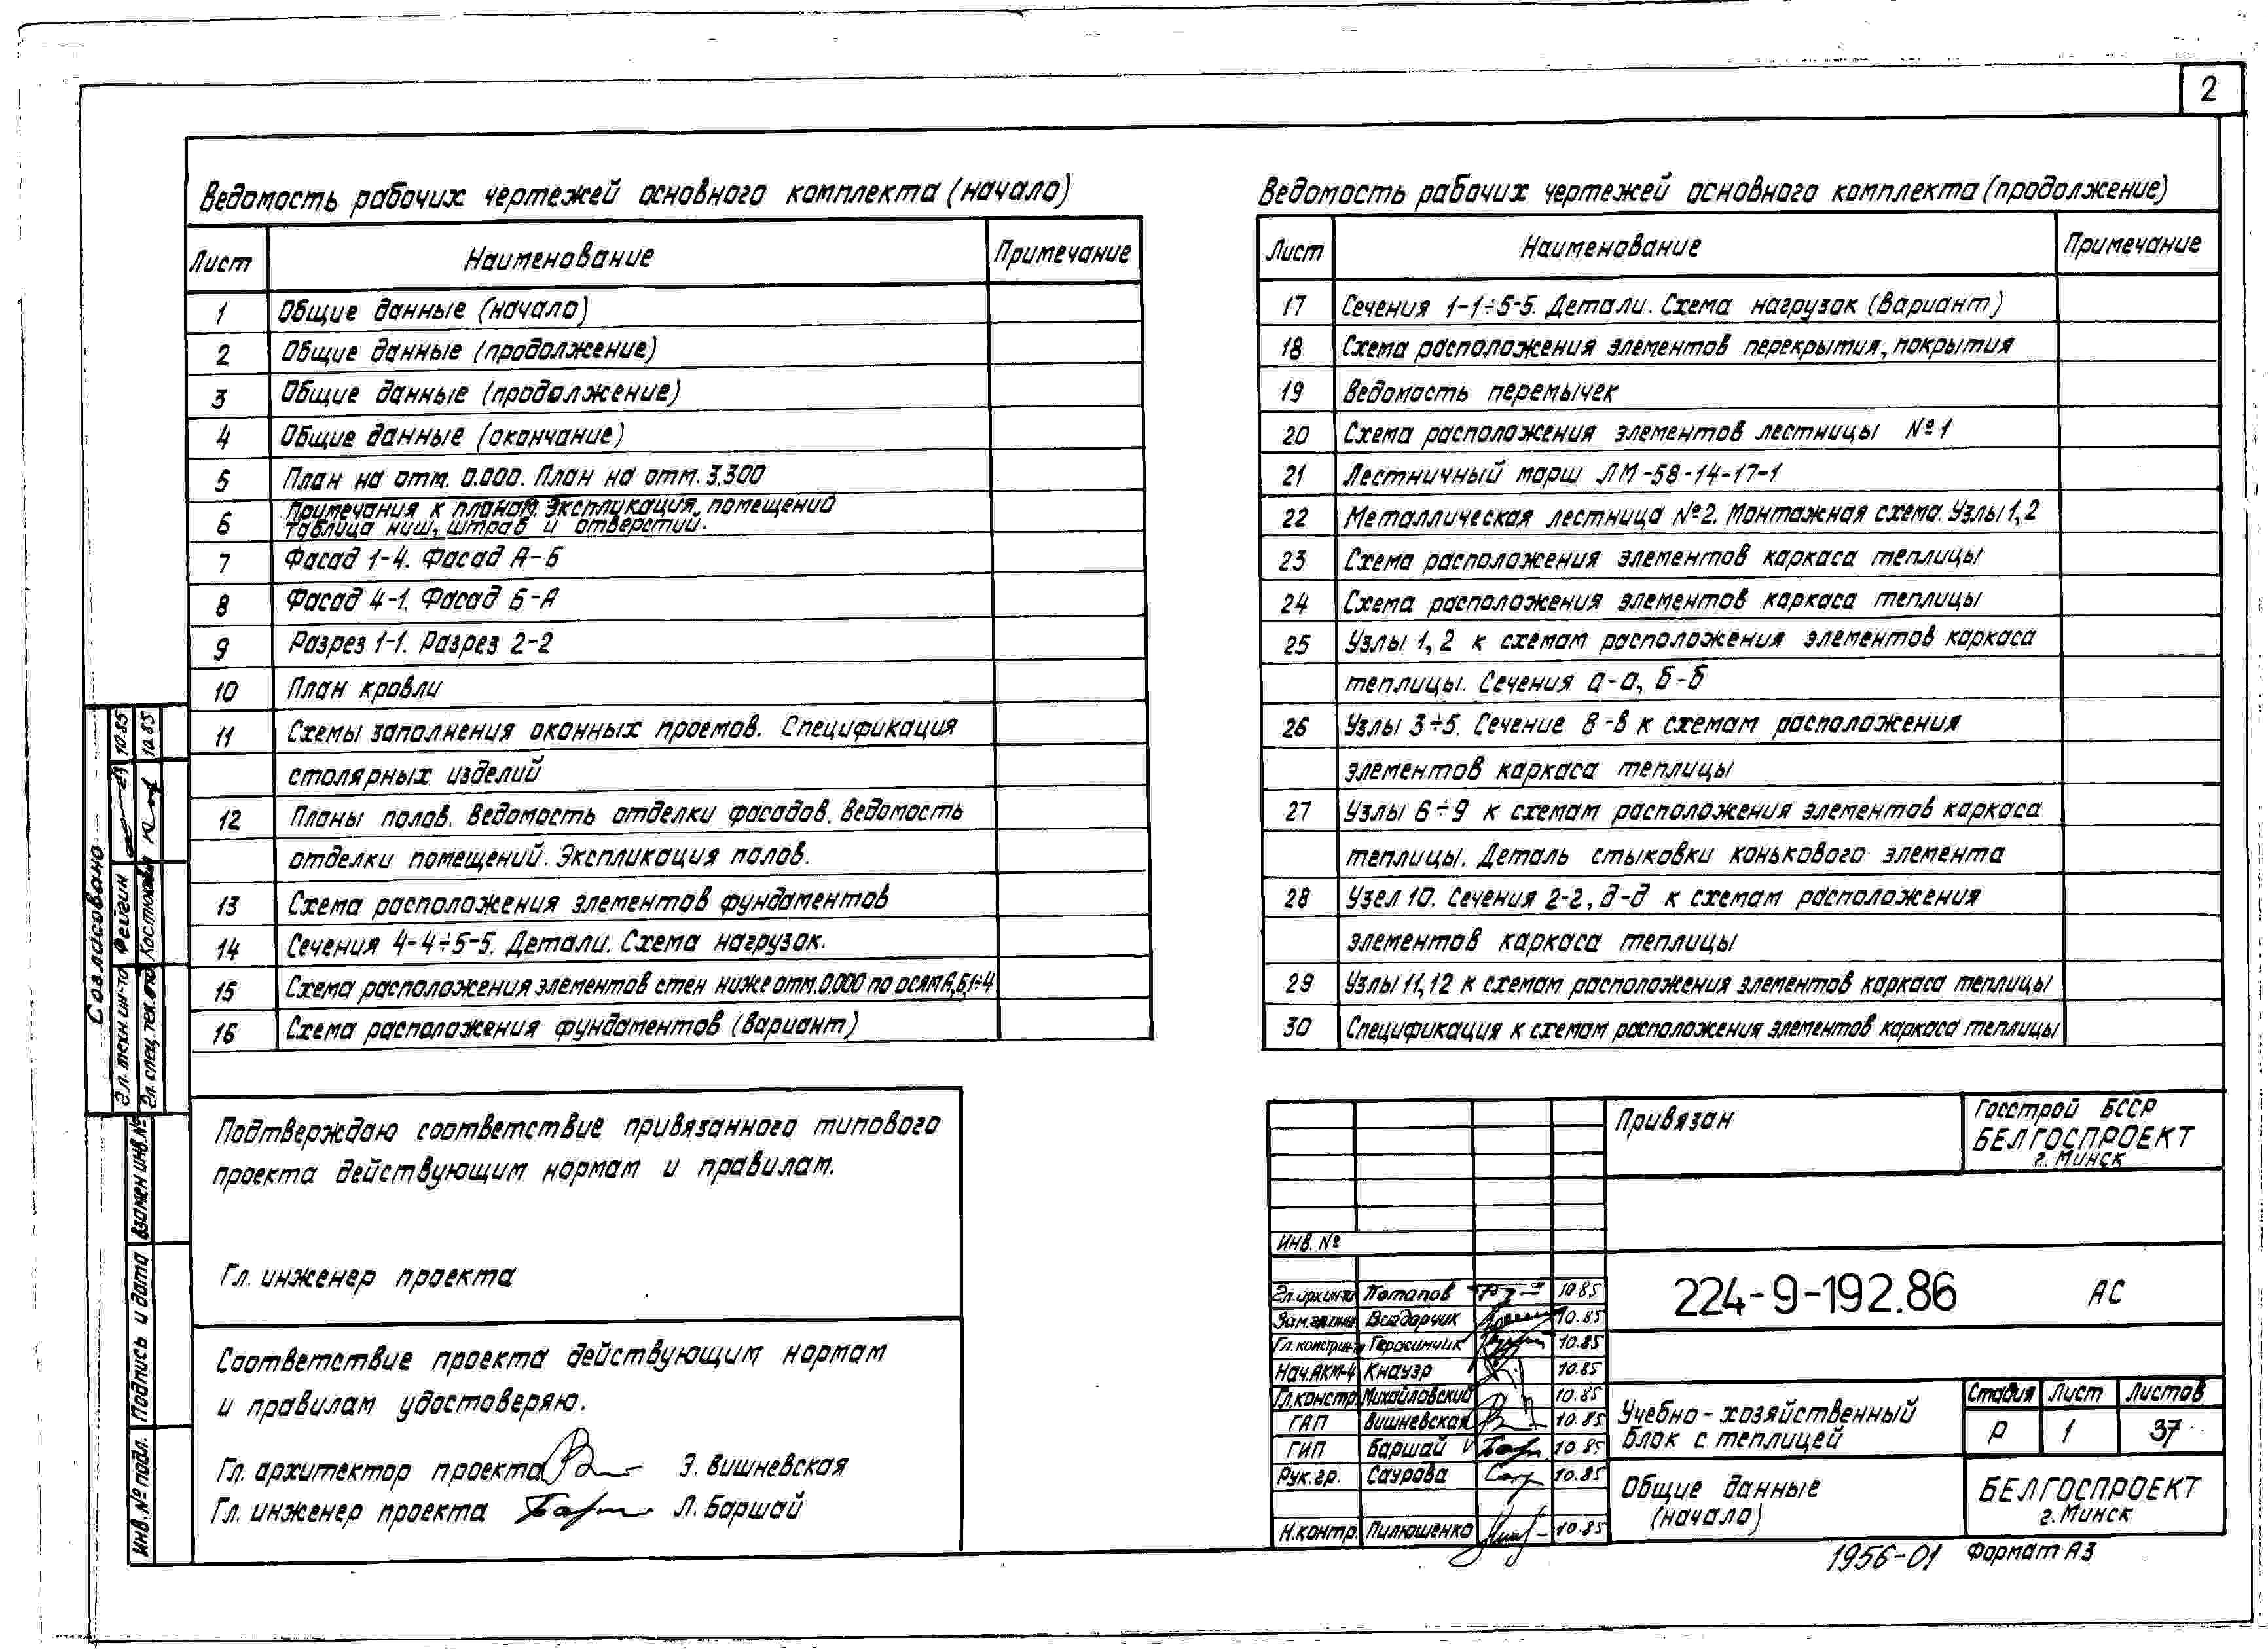 2
Ведомость рабочих чертежей основного комплекта (начало)
Лист Наименование Примечание
1 Общие данные (начало)
2 Общие данные (продолжение)
3 Общие данные (продолжение)
4 Общие данные (окончание)
5 План на отм. 0.000. План на отм. 3.300
6 Примечания к планам. Экспликация помещений
Таблица ниш, штраб и отверстий.
7 Фасад 1-4. Фасад А-Б
8 Фасад 4-1. Фасад Б-А
9 Разрез 1-1. Разрез 2-2
10 План кровли
11 Схемы заполнения оконных проемов. Спецификация
столярных изделий
12 Планы полов. Ведомость отделки фасадов. Ведомость
отделки помещений. Экспликация полов.
13 Схема расположения элементов фундаментов
14 Сечения 4-4÷5-5. Детали. Схема нагрузок.
15 Схема расположения элементов стен ниже отм. 0.000 по осям А,Б,1÷4
16 Схема расположения фундаментов (вариант)
Ведомость рабочих чертежей основного комплекта (продолжение)
Лист Наименование Примечание
17 Сечения 1-1÷5-5. Детали. Схема нагрузок (вариант)
18 Схема расположения элементов перекрытия, покрытия
19 Ведомость перемычек
20 Схема расположения элементов лестницы №1
21 Лестничный марш ЛМ-58-14-17-1
22 Металлическая лестница №2. Монтажная схема. Узлы 1, 2
23 Схема расположения элементов каркаса теплицы
24 Схема расположения элементов каркаса теплицы
25 Узлы 1, 2 к схемам расположения элементов каркаса
теплицы. Сечения а-а, б-б
26 Узлы 3÷5. Сечение в-в к схемам расположения
элементов каркаса теплицы
27 Узлы 6÷9 к схемам расположения элементов каркаса
теплицы. Деталь стыковки конькового элемента
28 Узел 10. Сечения г-г, д-д к схемам расположения
элементов каркаса теплицы
29 Узлы 11, 12 к схемам расположения элементов каркаса теплицы
30 Спецификация к схемам расположения элементов каркаса теплицы
Согласовано
Гл. техн. ин-та Фейгин 10.85
Гл. спец. тех. отд. 10.85
Взамен инв. №
Подпись и дата
Инв. № подл.
Подтверждаю соответствие привязанного типового
проекта действующим нормам и правилам.
Гл. инженер проекта
Соответствие проекта действующим нормам
и правилам удостоверяю.
Гл. архитектор проекта Э. Вишневская
Гл. инженер проекта Л. Баршай
Привязан
Госстрой БССР
БЕЛГОСПРОЕКТ
г. Минск
Инв. №
Гл.арх.ин-та Потапов 10.85
Зам.гл.инж. Вигдорчик 10.85
Гл.констр.ин-та Герасимчик 10.85
Нач.АКМ-4 Кнауэр 10.85
Гл.констр. Михайловский 10.85
ГАП Вишневская 10.85
ГИП Баршай 10.85
Рук.гр. Саурова 10.85
Н.контр. Пилюшенко 10.85
224-9-192.86 АС
Учебно-хозяйственный
блок с теплицей
Стадия Лист Листов
Р 1 37
Общие данные
(начало)
БЕЛГОСПРОЕКТ
г. Минск
1956-01 Формат А3